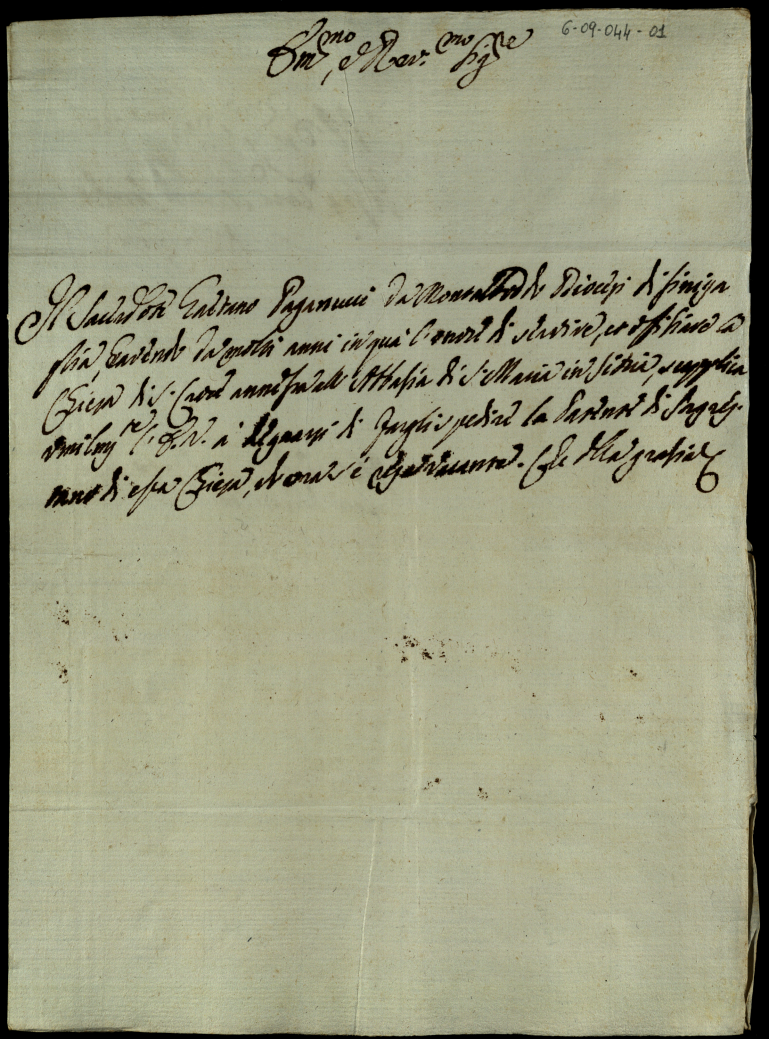 6-09-044-01
Em.mo, e Rev.mo Sig.re
Il Sacerdote Gaetano Paganucci da Montalboddo Diocesi di Siniga
glia, havendo da molti anni in qua l'onore di servire, et offitiare la
Chiesa di S. annessa all' Abbasia di S. Maria in Sitria, supplica
umilm.te l'E.V. à degnarsi di fargli spedire la Patente di Sagres
tano di essa Chiesa, che ora è vacante. Che della gratia &